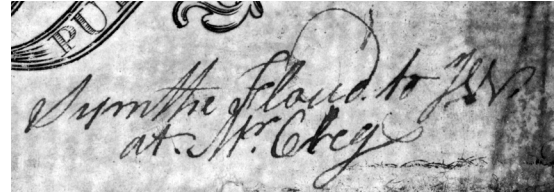 PU
Symthe Floud. to
at. Mr. Cleg